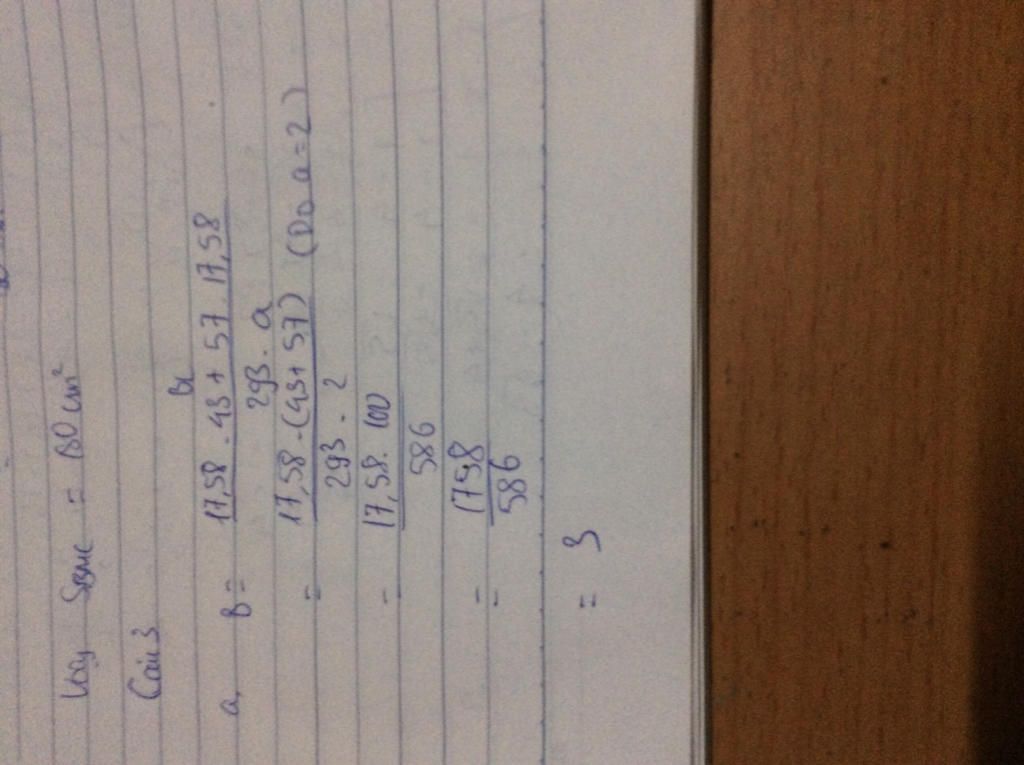 Vậy SBMC = 180 cm²
Câu 3
Bl
a, B = 17,58 . 43 + 57 . 17,58
293 . a
= 17,58 . (43 + 57) (Do a = 2)
293 . 2
= 17,58 . 100
586
= 1758
586
= 3